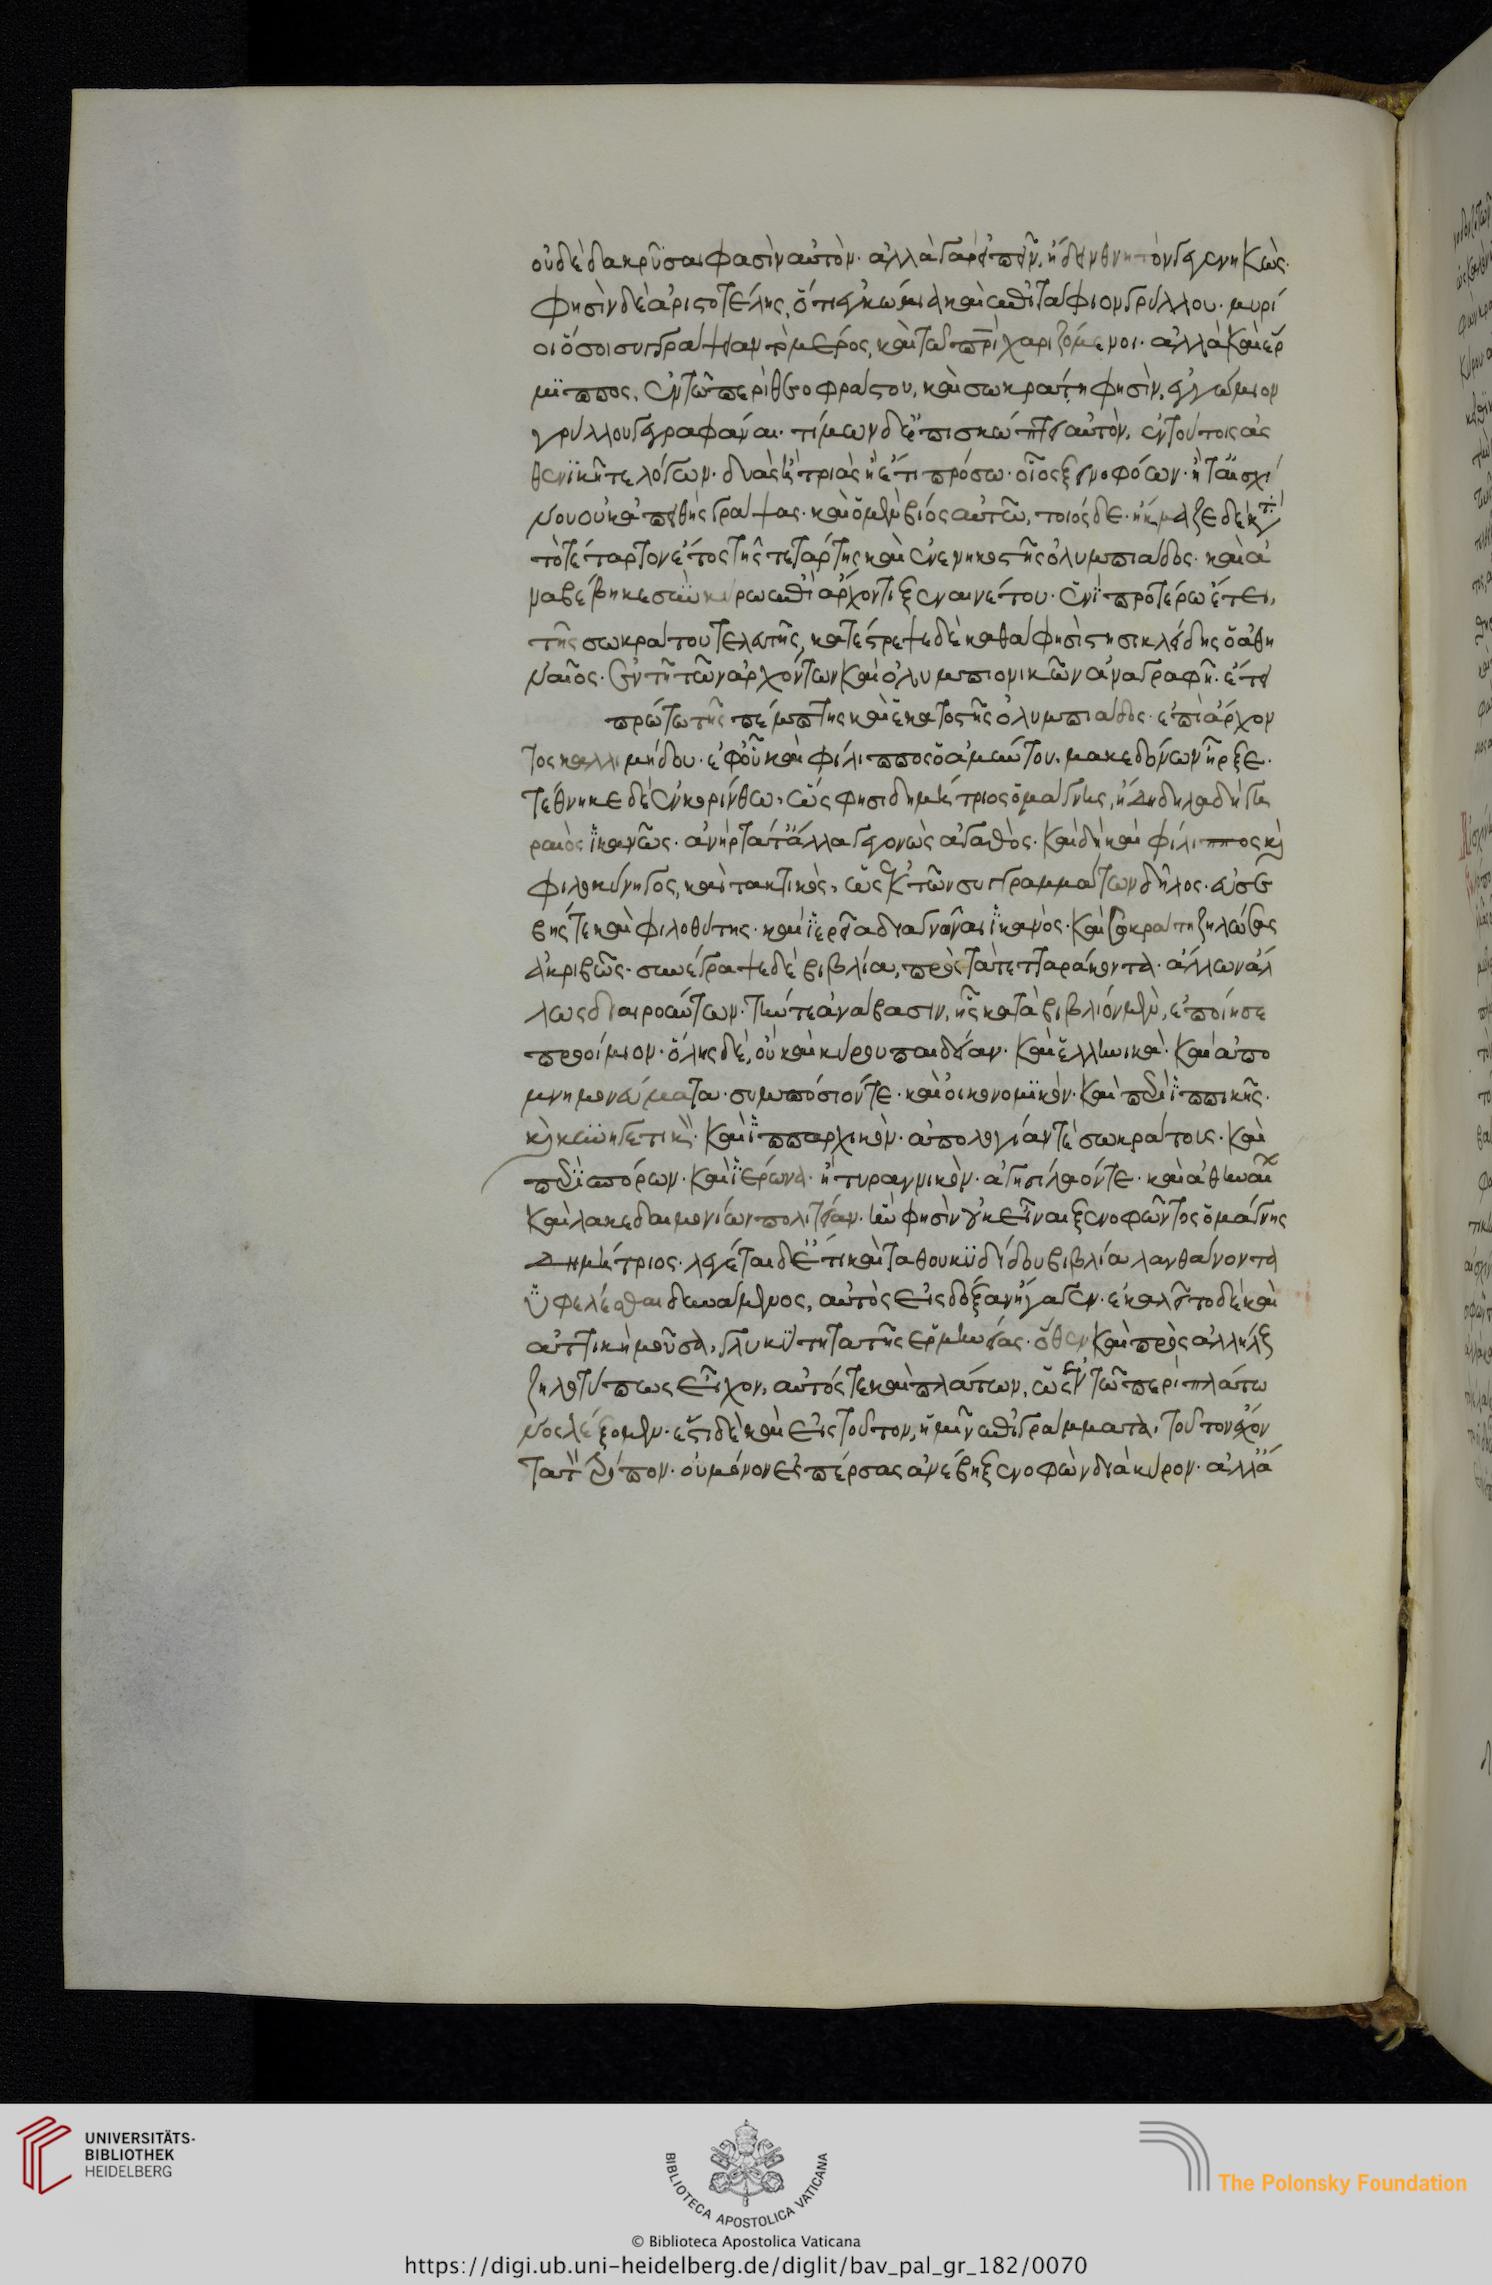 οὐδὲ δακρῦσαι φασὶν αὐτὸν· ἀλλὰ γὰρ εἰπεῖν, ἤδειν θνητὸν γεγενηκὼς·
φησὶν δὲ ἀριστοτέλης, ὅτι ἐγκώμια καὶ ἐπιτάφιον γρύλλου· μυρί
οι ὅσοι συνέγραψαν τὸ μέρος, καὶ τῶ πατρὶ χαριζόμενοι· ἀλλὰ καὶ ἕρ
μιππος, ἐν τῶ περὶ θεοφράστου, καὶ σωκράτη φησὶν, ἐγκώμιον
γρύλλου γεγραφέναι· τίμων δ' ἐπισκώπτει αὐτὸν, ἐν τούτοις ἀσ
θενικὴ τε λόγων· δυὰς ἢ τριὰς ἢ ἔτι πρόσω· οἷος ξεινοφόων· ἤτ' αἰσχί
νου οὐκ ἀπειθὴς γράψαι· καὶ ὁ μὲν βίος αὐτῶ, τοιόσδε· ἤκμαζε δὲ κατὰ
τὸ τέταρτον ἔτος τῆς τετάρτης καὶ ἐνενηκοστῆς ὀλυμπιάδος· καὶ ἀ
ναβέβηκε σὺν κύρω ἐπὶ ἄρχοντι ξεναινέτου· ἑνὶ πρότερω ἔτει,
τῆς σωκράτου τελευτῆς, κατέστρεψε δὲ καθά φησι στησικλείδης ὁ ἀθη
ναῖος· ἐν τῆ τῶν ἀρχόντων καὶ ὀλυμπιονικῶν ἀναγραφῆ· ἔτει
πρώτω τῆς πέμπτης καὶ ἑκατοστῆς ὀλυμπιάδος· ἐπὶ ἄρχον
τος καλλιμήδου· ἐφ' οὗ καὶ φίλιππος ὁ ἀμύντου, μακεδόνων ἦρξε·
τέθνηκε δὲ ἐν κορίνθω, ὥς φησι δημήτριος ὁ μάγνης, ἤδη δηλαδὴ γη
ραιὸς ἱκανῶς· ἀνὴρ τά τ' ἄλλα γεγονὼς ἀγαθὸς· καὶ δὴ καὶ φίλιππος καὶ
φιλοκύνηγος, καὶ τακτικὸς, ὡς ἐκ τῶν συγγραμμάτων δῆλος· εὐσε
βής τε καὶ φιλοθύτης· καὶ ἱερεῖα διαγνῶναι ἱκανὸς· καὶ σωκράτη ζηλώσας
ἀκριβῶς· συνέγραψε δὲ βιβλία, πρὸς τὰ τετταράκοντα· ἄλλων ἄλ
λως διαιρούντων· τήν τε ἀνάβασιν, ἧς κατὰ βιβλίον μὲν, ἐποίησε
προοίμιον· ὅλης δὲ, οὔ καὶ κύρου παιδείαν· καὶ ἑλληνικὰ· καὶ ἀπο
μνημονεύματα· συμπόσιόν τε· καὶ οἰκονομικόν· καὶ περὶ ἱππικῆς·
καὶ κυνηγετικὸν· καὶ ἱππαρχικὸν· ἀπολογίαν τε σωκράτους· καὶ
περὶ πόρων· καὶ ἱέρωνα· ἢ τυραννικὸν· ἀγησίλαόν τε· καὶ ἀθηναίων
καὶ λακεδαιμονίων πολιτείαν· ἥν φησὶν οὐκ εἶναι ξενοφῶντος ὁ μάγνης
δημήτριος· λέγεται δ' ὅτι καὶ τὰ θουκυδίδου βιβλία λανθάνοντα
ὑφελέσθαι δυνάμενος, αὐτὸς εἰς δόξαν ἤγαγεν· ἐκαλεῖτο δὲ καὶ
ἀττικὴ μοῦσα, γλυκύτητα τῆς ἑρμηνείας· ὅθεν καὶ πρὸς ἀλλήλους
ζηλοτύπως εἶχον, αὐτός τε καὶ πλάτων, ὡς ἐν τῶ περὶ πλάτω
νος λέξομεν· ἔστι δὲ καὶ εἰς τοῦτον, ἡμῖν ἐπιγράμματα, τοῦτον ἔχον
τα τὸν τρόπον· οὐ μόνον ἐς πέρσας ἀνέβη ξενοφῶν διὰ κῦρον· ἀλλ' ἄ
UNIVERSITÄTS-
BIBLIOTHEK
HEIDELBERG
BIBLIOTECA APOSTOLICA VATICANA
The Polonsky Foundation
© Biblioteca Apostolica Vaticana
https://digi.ub.uni-heidelberg.de/diglit/bav_pal_gr_182/0070